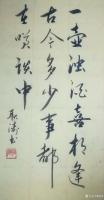 一壶浊酒喜相逢
古今多少事都
在笑谈中